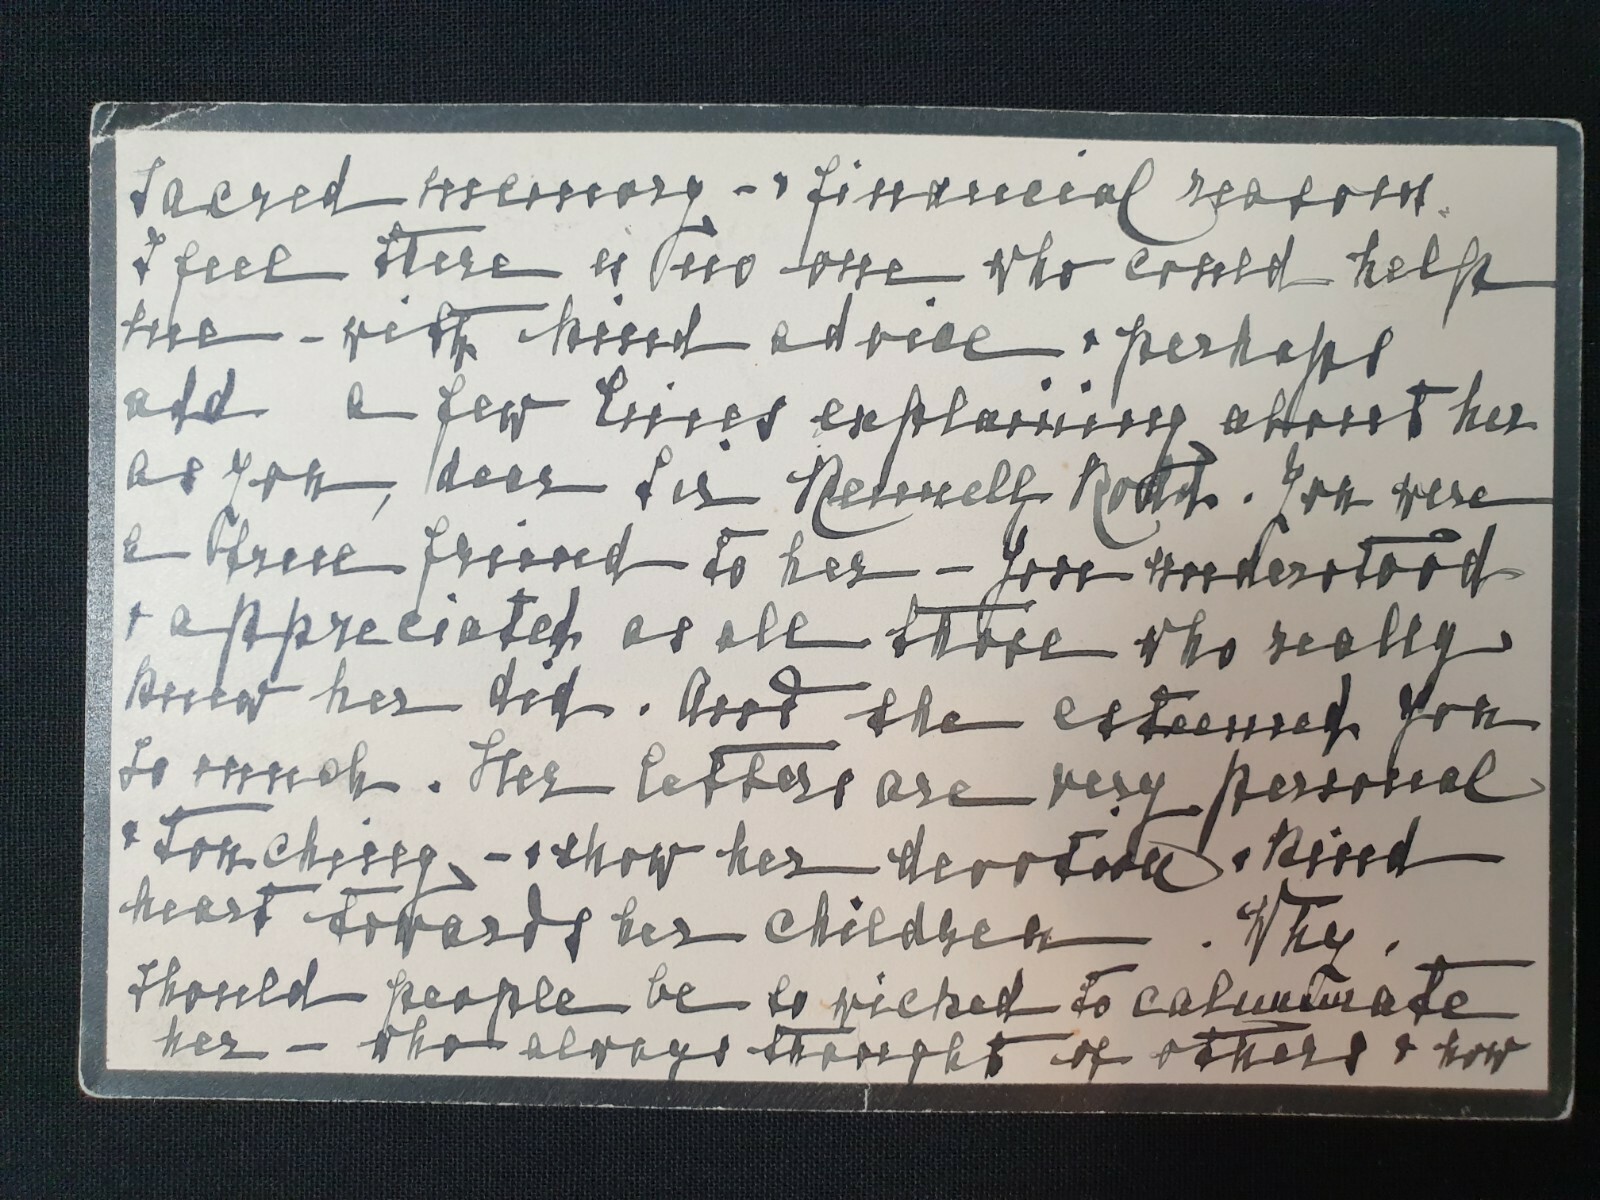 sacred memory - & financial reasons.
I feel there is no one who could help
me - with kind advice & perhaps
add a few lines explaining about her
as you, dear Sir Rennell Rodd. You were
a true friend to her - you understood
& appreciated as all those who really
knew her did. And she esteemed you
so much. Her letters are very personal
& touching, - & show her devotion & kind
heart towards her children. Why,
should people be so wicked to calumniate
her - who always thought of others & how